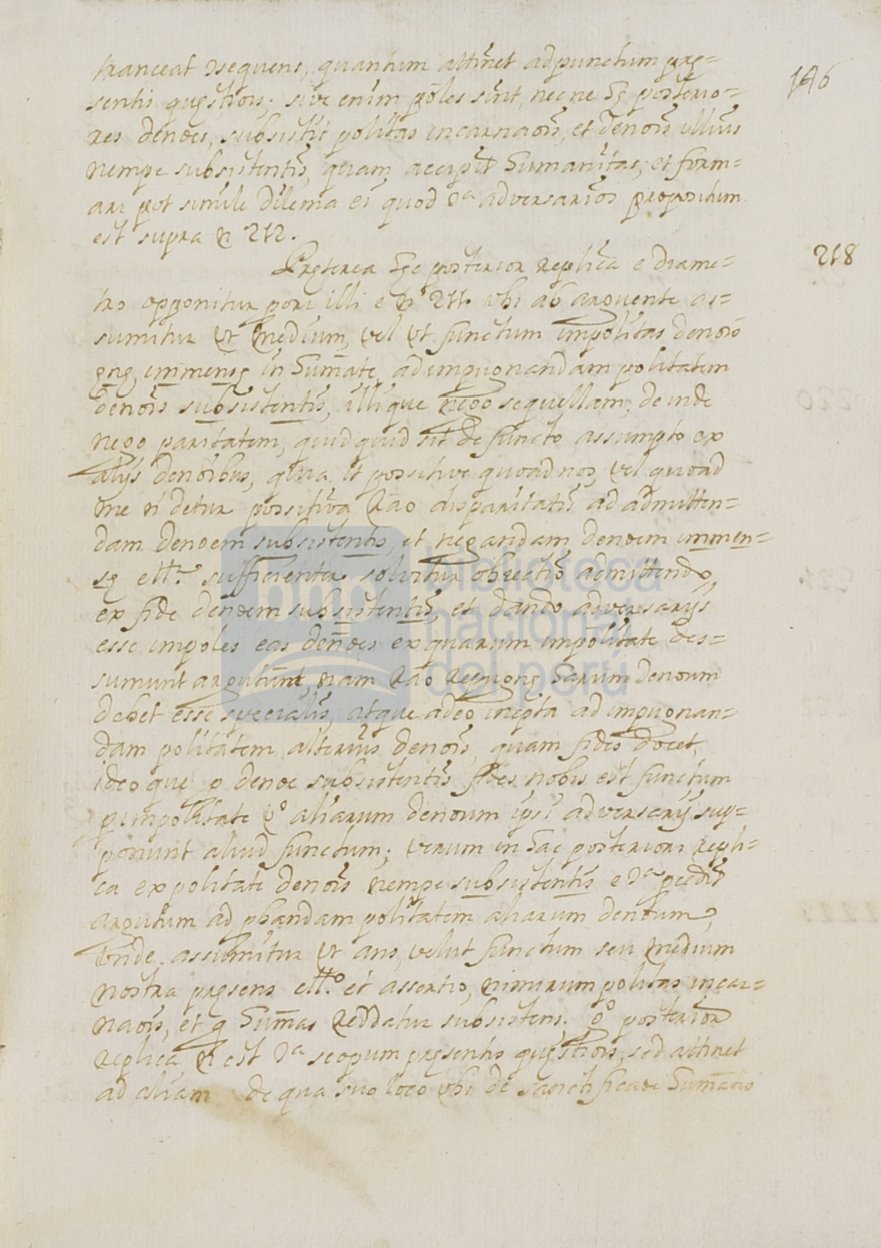 tranceat 2sequens, quantum attinet ad punctum prę=
sentis quęstiois; sive enim poles sint, nec ne hę posterio=
res denoes, subsistit politas incarnaois, et denois illius
nempe subsistentis, quam accipit humanitas, et form=
ari pot simile dilema ei quod 2ª adversarios propositum
est supra n 212.
Pręterea hęc posterior replica e diame=
tro opponitur pori illi e nº 211. vbi ab arguente as=
sumitur vt medium, vel vt functum impolitas denois
immensę in humate, ad impugnandam politatem
denois subsistentis, illi que nego sequellam; deinde
nego paritatem, quidquid sit de functo assumpto ex
alijs denoibus, quia et possitive quoad nos, vel quoad
me n detur possitiva rao disparitatis ad admitten=
dam denoem subsistentis, et negandam denoem immen=
sę ettª. sufficienter solvitur obiectio admittendo
ex fide denoem subsistentis, et dando adversarijs
esse impoles eas denoes ex quarum impolitate des=
sumunt argutum, nam rao regiong harum denoum
debet esse specialis, atque adeo inepta ad impugnan=
dam politatem alterius denois, quam fides docet,
ideo que p denoe subsistentis fides nobis est functum
p impolitate vº aliarum denoum ipsi adversarij sup=
ponunt aliud functum; verum in hac posteriori repli=
ca ex politate denois nempe subsistentis e 2ª
argutum ad pbandam politatem aliarum denoum,
vnde assumitur vt ans, velut functum seu medium
nostra pręsens ettº. et assertio, nimirum politas incar=
naois, et q humas reddatur subsistens. gº posterior
replica n est 2ª scopum pręsentis quęstiois, sed attinet
ad aliam de qua suo loco vbi de sanctificaoe humaois
146
218
biblioteca
nacional
del perú